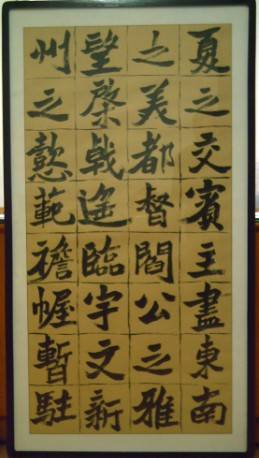 夏之交賓主盡東南
之美都督閻公之雅
望棨戟遙臨宇文新
州之懿範襜帷暫駐